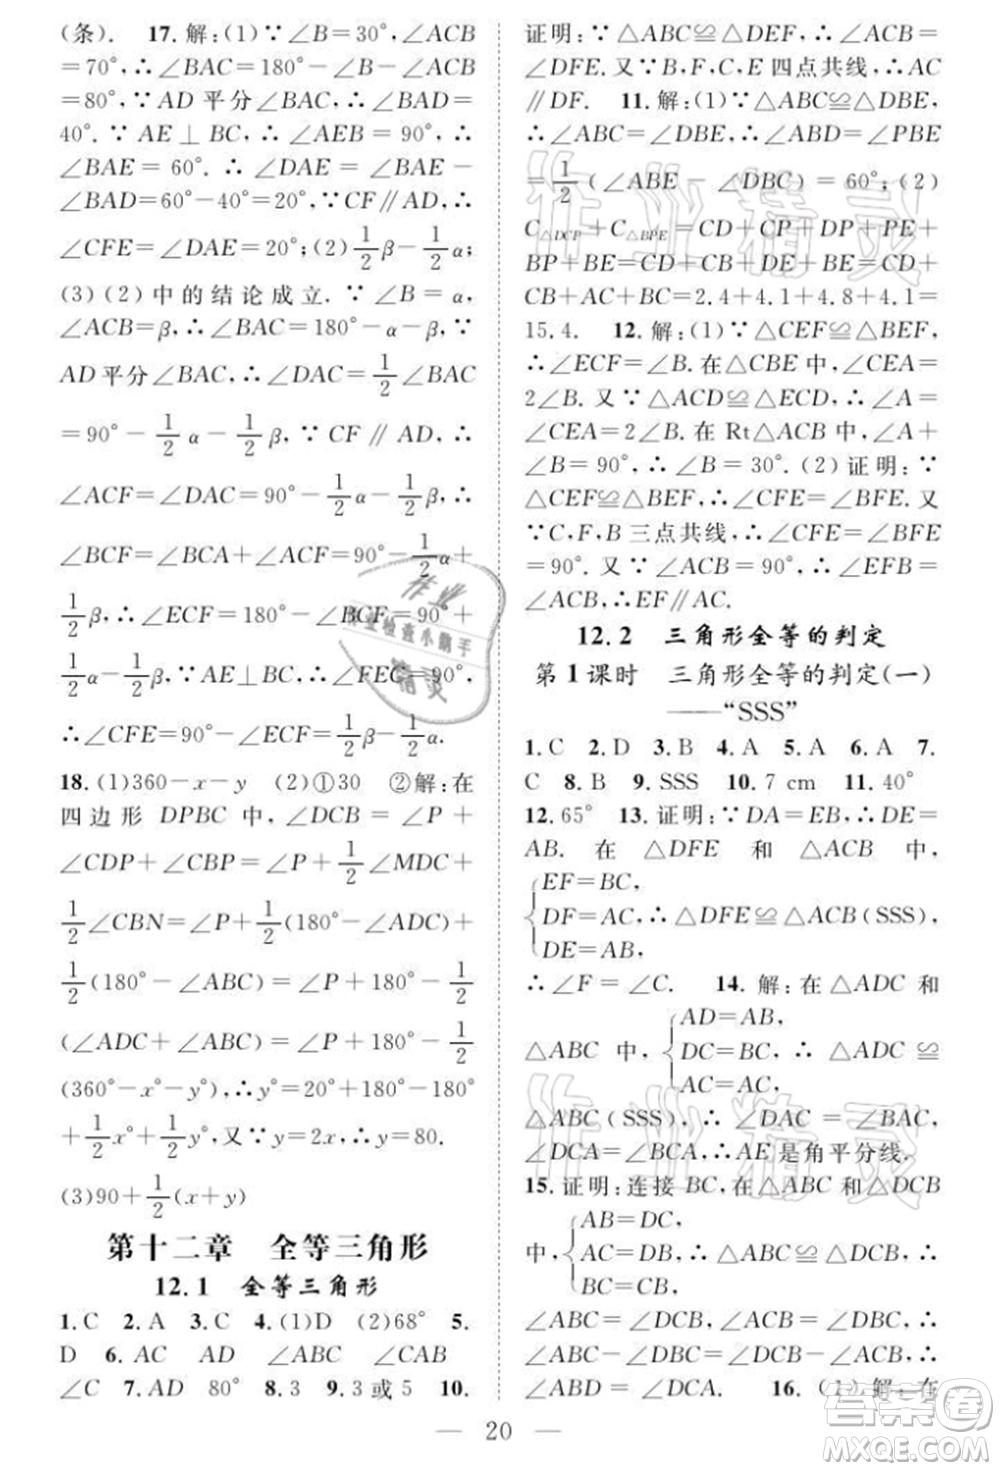 (条).　17.解:(1)∵∠B=30°,∠ACB
=70°,∴∠BAC=180°-∠B-∠ACB
=80°,∵AD平分∠BAC,∴∠BAD=
40°.∵AE⊥BC,∴∠AEB=90°,∴
∠BAE=60°.∴∠DAE=∠BAE-
∠BAD=60°-40°=20°.∵CF∥AD,∴
∠CFE=∠DAE=20°;(2)1/2β-1/2α;
(3)(2)中的结论成立.∵∠B=α,
∠ACB=β,∴∠BAC=180°-α-β,∵
AD平分∠BAC,∴∠DAC=1/2∠BAC
=90°-1/2α-1/2β,∵CF∥AD,∴
∠ACF=∠DAC=90°-1/2α-1/2β,∴
∠BCF=∠BCA+∠ACF=90°-1/2α+
1/2β,∴∠ECF=180°-∠BCF=90°+
1/2α-1/2β.∵AE⊥BC,∴∠FEC=90°,
∴∠CFE=90°-∠ECF=1/2β-1/2α.
18.(1)360-x-y　(2)①30　②解:在
四边形DPBC中,∠DCB=∠P+
∠CDP+∠CBP=∠P+1/2∠MDC+
1/2∠CBN=∠P+1/2(180°-∠ADC)+
1/2(180°-∠ABC)=∠P+180°-1/2
(∠ADC+∠ABC)=∠P+180°-1/2
(360°-x°-y°),∴y°=20°+180°-180°
+1/2x°+1/2y°,又∵y=2x,∴y=80.
(3)90+1/2(x+y)
第十二章　全等三角形
12.1　全等三角形
1.C　2.A　3.C　4.(1)D　(2)68°　5.
D　6.AC　AD　∠ABC　∠CAB
∠C　7.AD　80°　8.3　9.3或5　10.
证明:∵△ABC≌△DEF,∴∠ACB
=∠DFE.又∵B,F,C,E四点共线,∴AC
∥DF.　11.解:(1)∵△ABC≌△DBE,
∴∠ABC=∠DBE,∴∠ABD=∠PBE
=1/2(∠ABE-∠DBC)=60°;(2)
C△DCP+C△BPE=CD+CP+DP+PE+
BP+BE=CD+CB+DE+BE=CD+
CB+AC+BC=2.4+4.1+4.8+4.1=
15.4.　12.解:(1)∵△CEF≌△BEF,
∴∠ECF=∠B.在△CBE中,∠CEA=
2∠B.又∵△ACD≌△ECD,∴∠A=
∠CEA=2∠B.在Rt△ACB中,∠A+
∠B=90°,∴∠B=30°.(2)证明:∵
△CEF≌△BEF,∴∠CFE=∠BFE.又
∵C,F,B三点共线,∴∠CFE=∠BFE
=90°.又∵∠ACB=90°,∴∠EFB=
∠ACB,∴EF∥AC.
12.2　三角形全等的判定
第1课时　三角形全等的判定(一)
——“SSS”
1.C　2.D　3.B　4.A　5.A　6.A　7.
C　8.B　9.SSS　10.7 cm　11.40°
12.65°　13.证明:∵DA=EB,∴DE=
AB.在△DFE和△ACB中,
EF=BC,
DF=AC,∴△DFE≌△ACB(SSS),
DE=AB,
∴∠F=∠C.　14.解:在△ADC和
AD=AB,
△ABC中,DC=BC,∴△ADC≌
AC=AC,
△ABC(SSS),∴∠DAC=∠BAC,
∠DCA=∠BCA.∴AE是角平分线.
15.证明:连接BC,在△ABC和△DCB
AB=DC,
中,AC=DB,∴△ABC≌△DCB,∴
BC=CB.
∠ABC=∠DCB,∠ACB=∠DBC,∴
∠ABC-∠DBC=∠DCB-∠ACB,
∴∠ABD=∠DCA.　16.(1)解:在
20
作业精灵
作业
作业检查小助手
精灵
作业精灵
答案圈
MXQE.COM